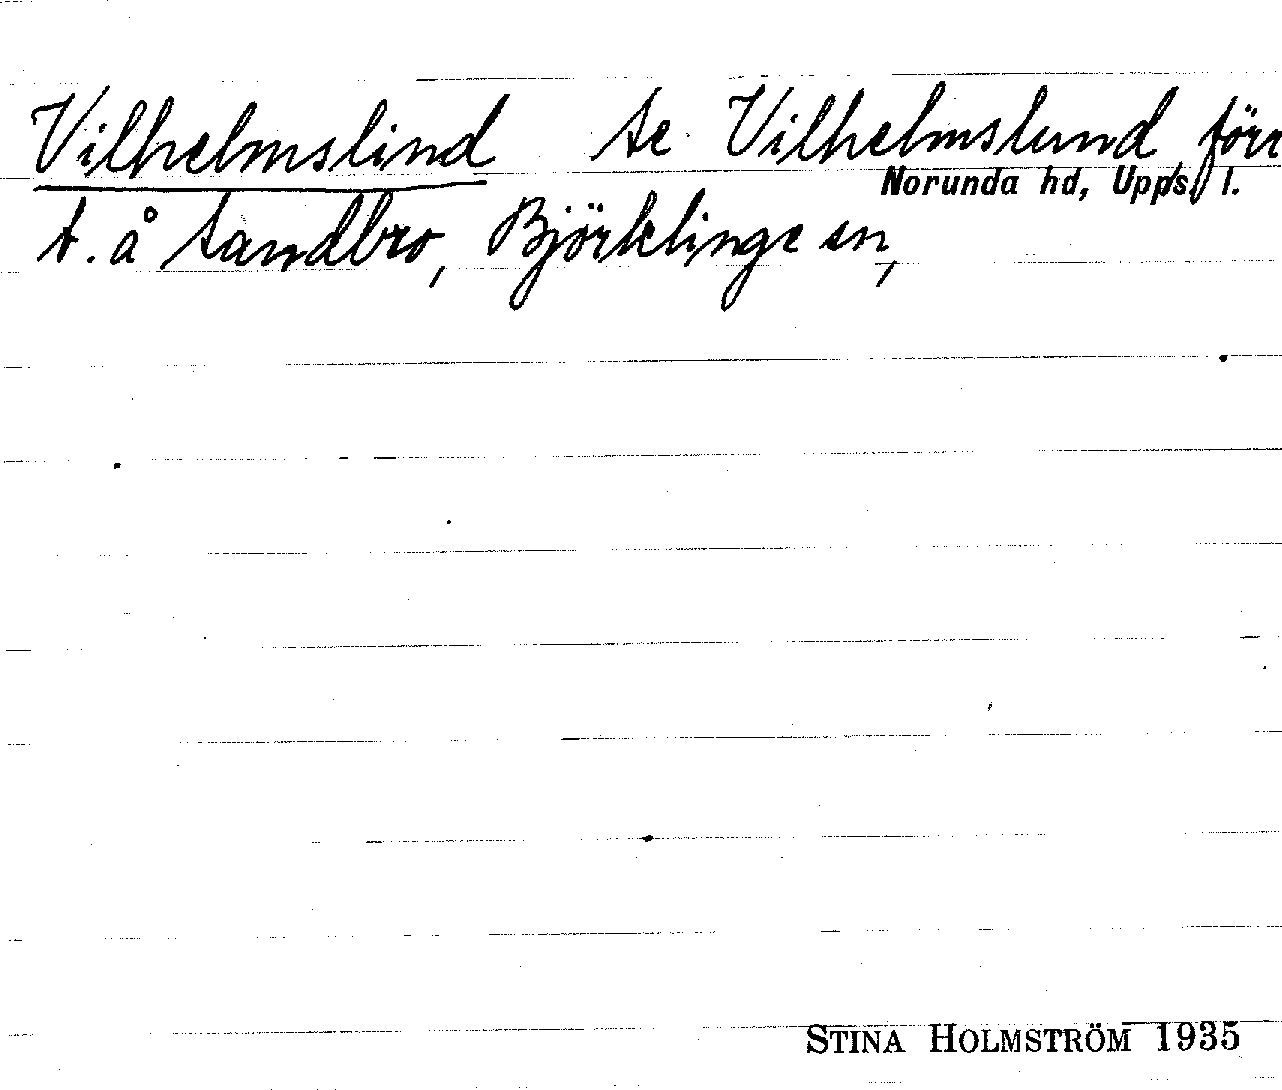 Vilhelmslind se Vilhelmslund, förr
Norunda hd, Upps. l.
t. å Sandbro, Björklinge sn,
STINA HOLMSTRÖM 1935